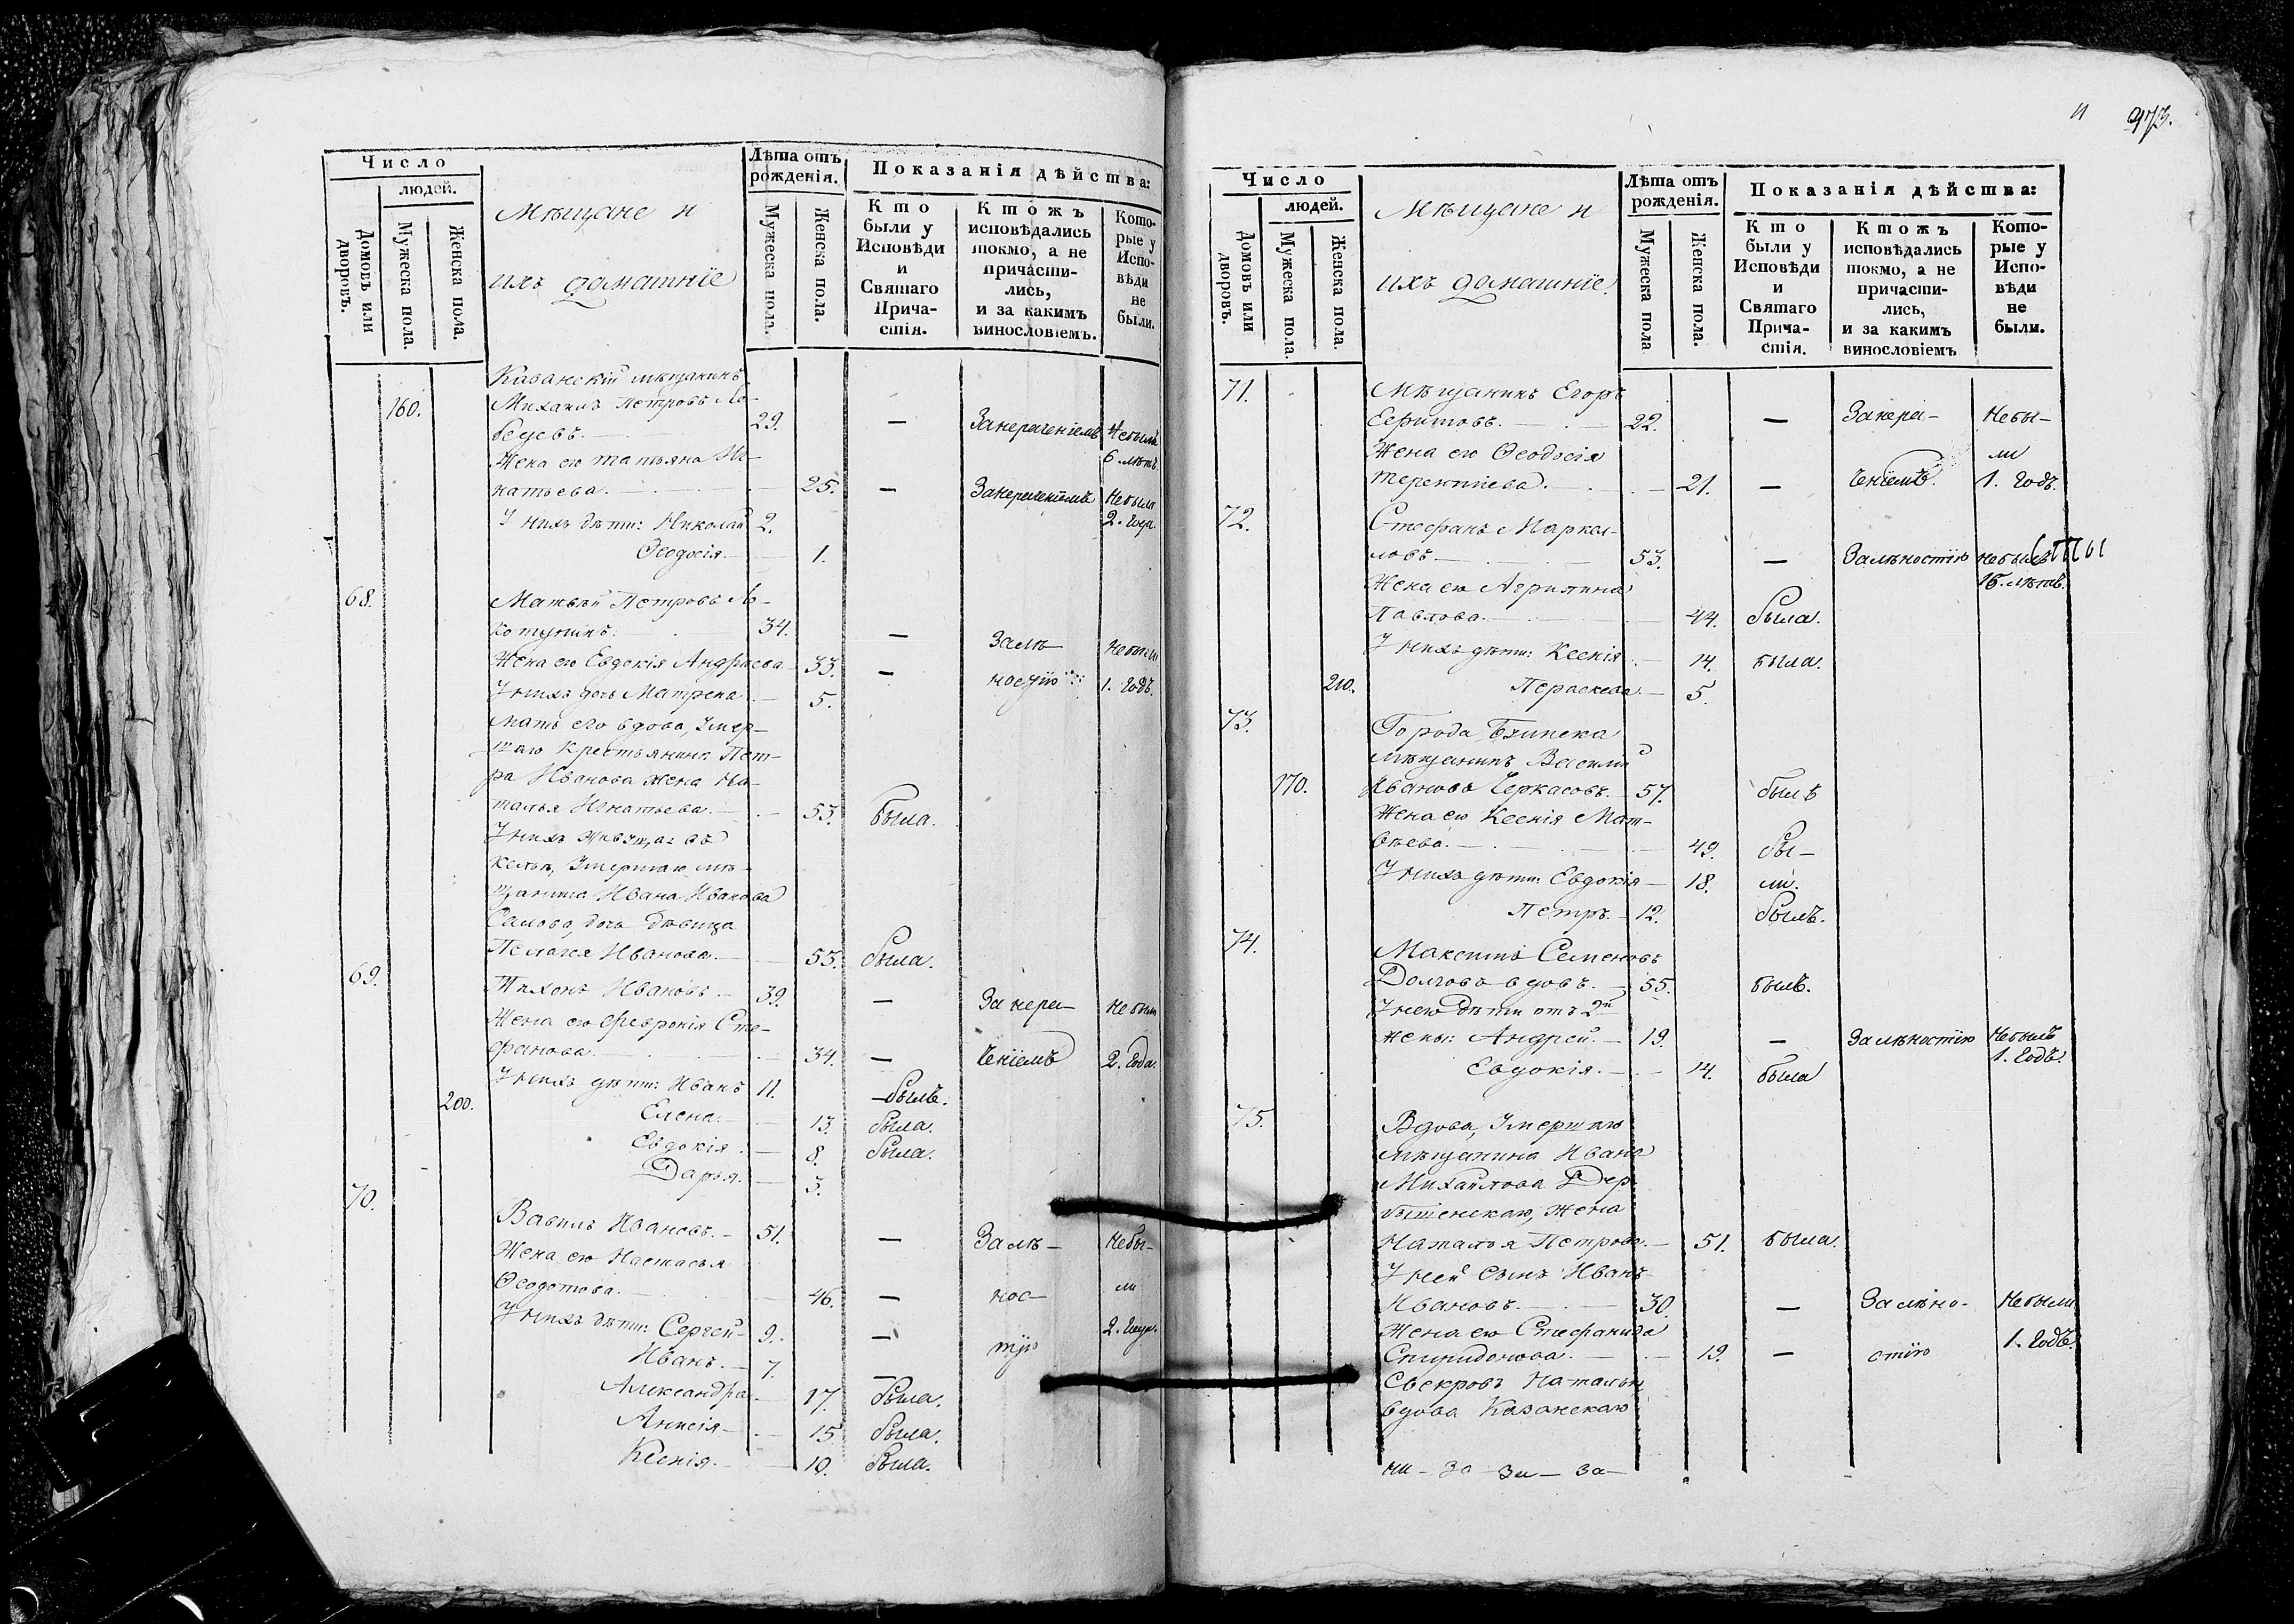 Число
людей.
Домовъ или дворовъ.
Мужеска пола.
Женска пола.
Мѣщане и
ихъ домашніе
Лѣта отъ рожденія.
Мужеска пола.
Женска пола.
Показанія дѣйства:
Кто были у Исповѣди и Святаго Причастія.
Ктожъ исповѣдались токмо, а не причастились, и за какимъ винословіемъ.
Которые у Исповѣди не были.
Казанскій мѣщанинъ
160. Михаилъ Петровъ
29. — Занераченіемъ Небылъ
6. лѣтъ
Жена его Татьяна Иг-
натьева. 25. — Занераченіемъ Небыла
2. года.
У нихъ дѣти: Николай 2.
Ѳеодосія. 1.
68. Матвѣй Петровъ
34. — Залѣ- Небыли
Жена его Евдокія Андрѣева 33. —
ностію 1. годъ.
У нихъ дочь Матрена 5.
Мать его вдова, умер-
шаго крестьянина Пет-
ра Иванова жена На-
талья Игнатьева. 53. была.
У нихъ живущая въ
кельѣ, умершаго мѣ-
щанина Ивана Иванова
дочь дѣвица
Пелагея Иванова. 55. была.
69. Тихонъ Ивановъ 39. — За нера- Небыли
Жена его Февронія Сте-
фанова. 34. — ченіемъ 2. года.
У нихъ дѣти: Иванъ 11. былъ.
200. Елена. 13. была.
Евдокія 8. была.
Дарья. 3.
70. Вавилъ Ивановъ. 51. — Залѣ- Небы-
Жена его Настасья
Ѳеодотова. 46. — нос- ли
У нихъ дѣти: Сергей 9. — 2. года.
Иванъ. 7. — тію
Александра 17. была.
Анисія 15. была.
Ксенія. 10. была.
473.
Число
людей.
Домовъ или дворовъ.
Мужеска пола.
Женска пола.
Мѣщане и
ихъ домашніе.
Лѣта отъ рожденія.
Мужеска пола
Женска пола.
Показанія дѣйства:
Кто были у Исповѣди и Святаго Причастія.
Ктожъ исповѣдались токмо, а не причастились, и за какимъ винословіемъ
Которые у Исповѣди не были.
71. Мѣщанинъ Егоръ
22. — Занера- Небы-
Жена его Ѳеодосія ли
Терентіева. 21. — ченіемъ. 1. годъ.
72. Стефанъ Маркел-
ловъ 53. — Залѣностію небылъ
15. лѣтъ.
Жена его Агрипина
Павлова. 44. была.
У нихъ дѣти: Ксенія 14. была.
210. Параскева. 5.
73. Города
мѣщанинъ Василій
170. Ивановъ Черкасовъ. 57. былъ
Жена его Ксенія Мат-
вѣева. 49. бы-
У нихъ дѣти: Евдокія 18. ли.
Петръ. 12. былъ.
74. Максимъ Семеновъ
Долговъ вдовъ. 55. былъ.
У него дѣти отъ 2й
жены: Андрей. 19. — Залѣностію Небылъ
1. годъ.
Евдокія. 14. была
75. Вдова, умершаго
мѣщанина Ивана
Михайлова Дер-
бышенскаго, жена
Наталья Петрова. 51. была.
У ней сынъ Иванъ
Ивановъ. 30. — Залѣно- Небыли
Жена его Стефанида
Спиридонова. 19. — стію 1. годъ.
Свекровь Натальи
вдова Казанскаго